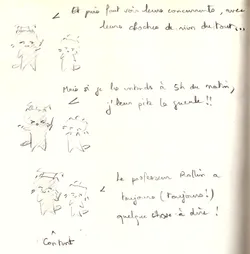 Et puis faut voir leurs concurrents, avec
leurs cloches de rien du tout...
Mais si je les entends à 5h du matin,
j'leur pète la gueule !!
Le professeur Rollin a
toujours (toujours !)
quelque chose à dire !
Content